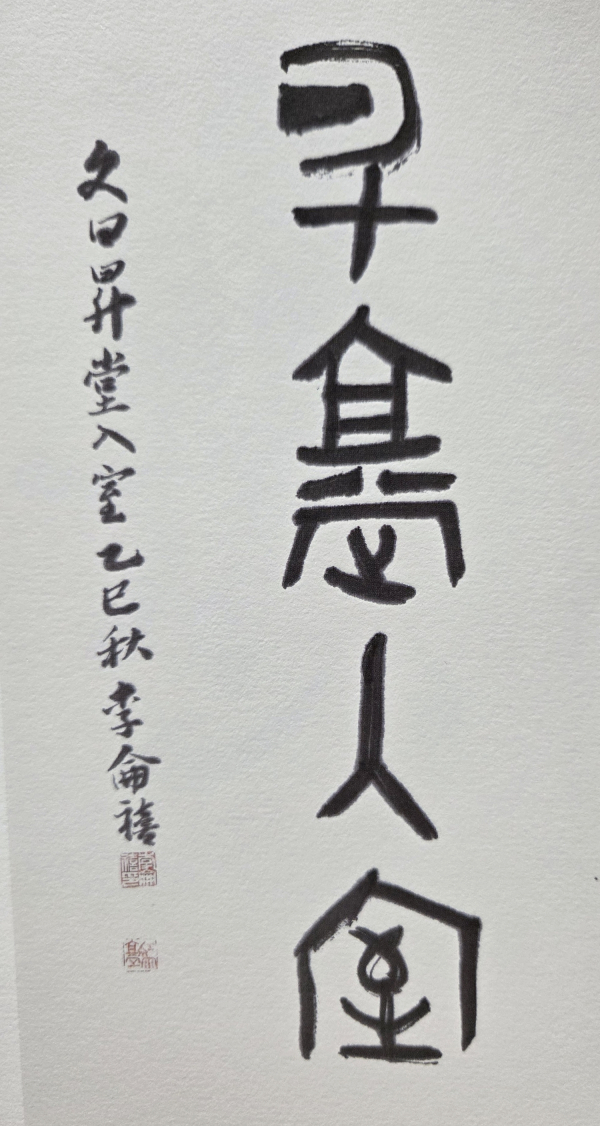 升堂入室
文曰昇堂入室乙巳秋李侖禧